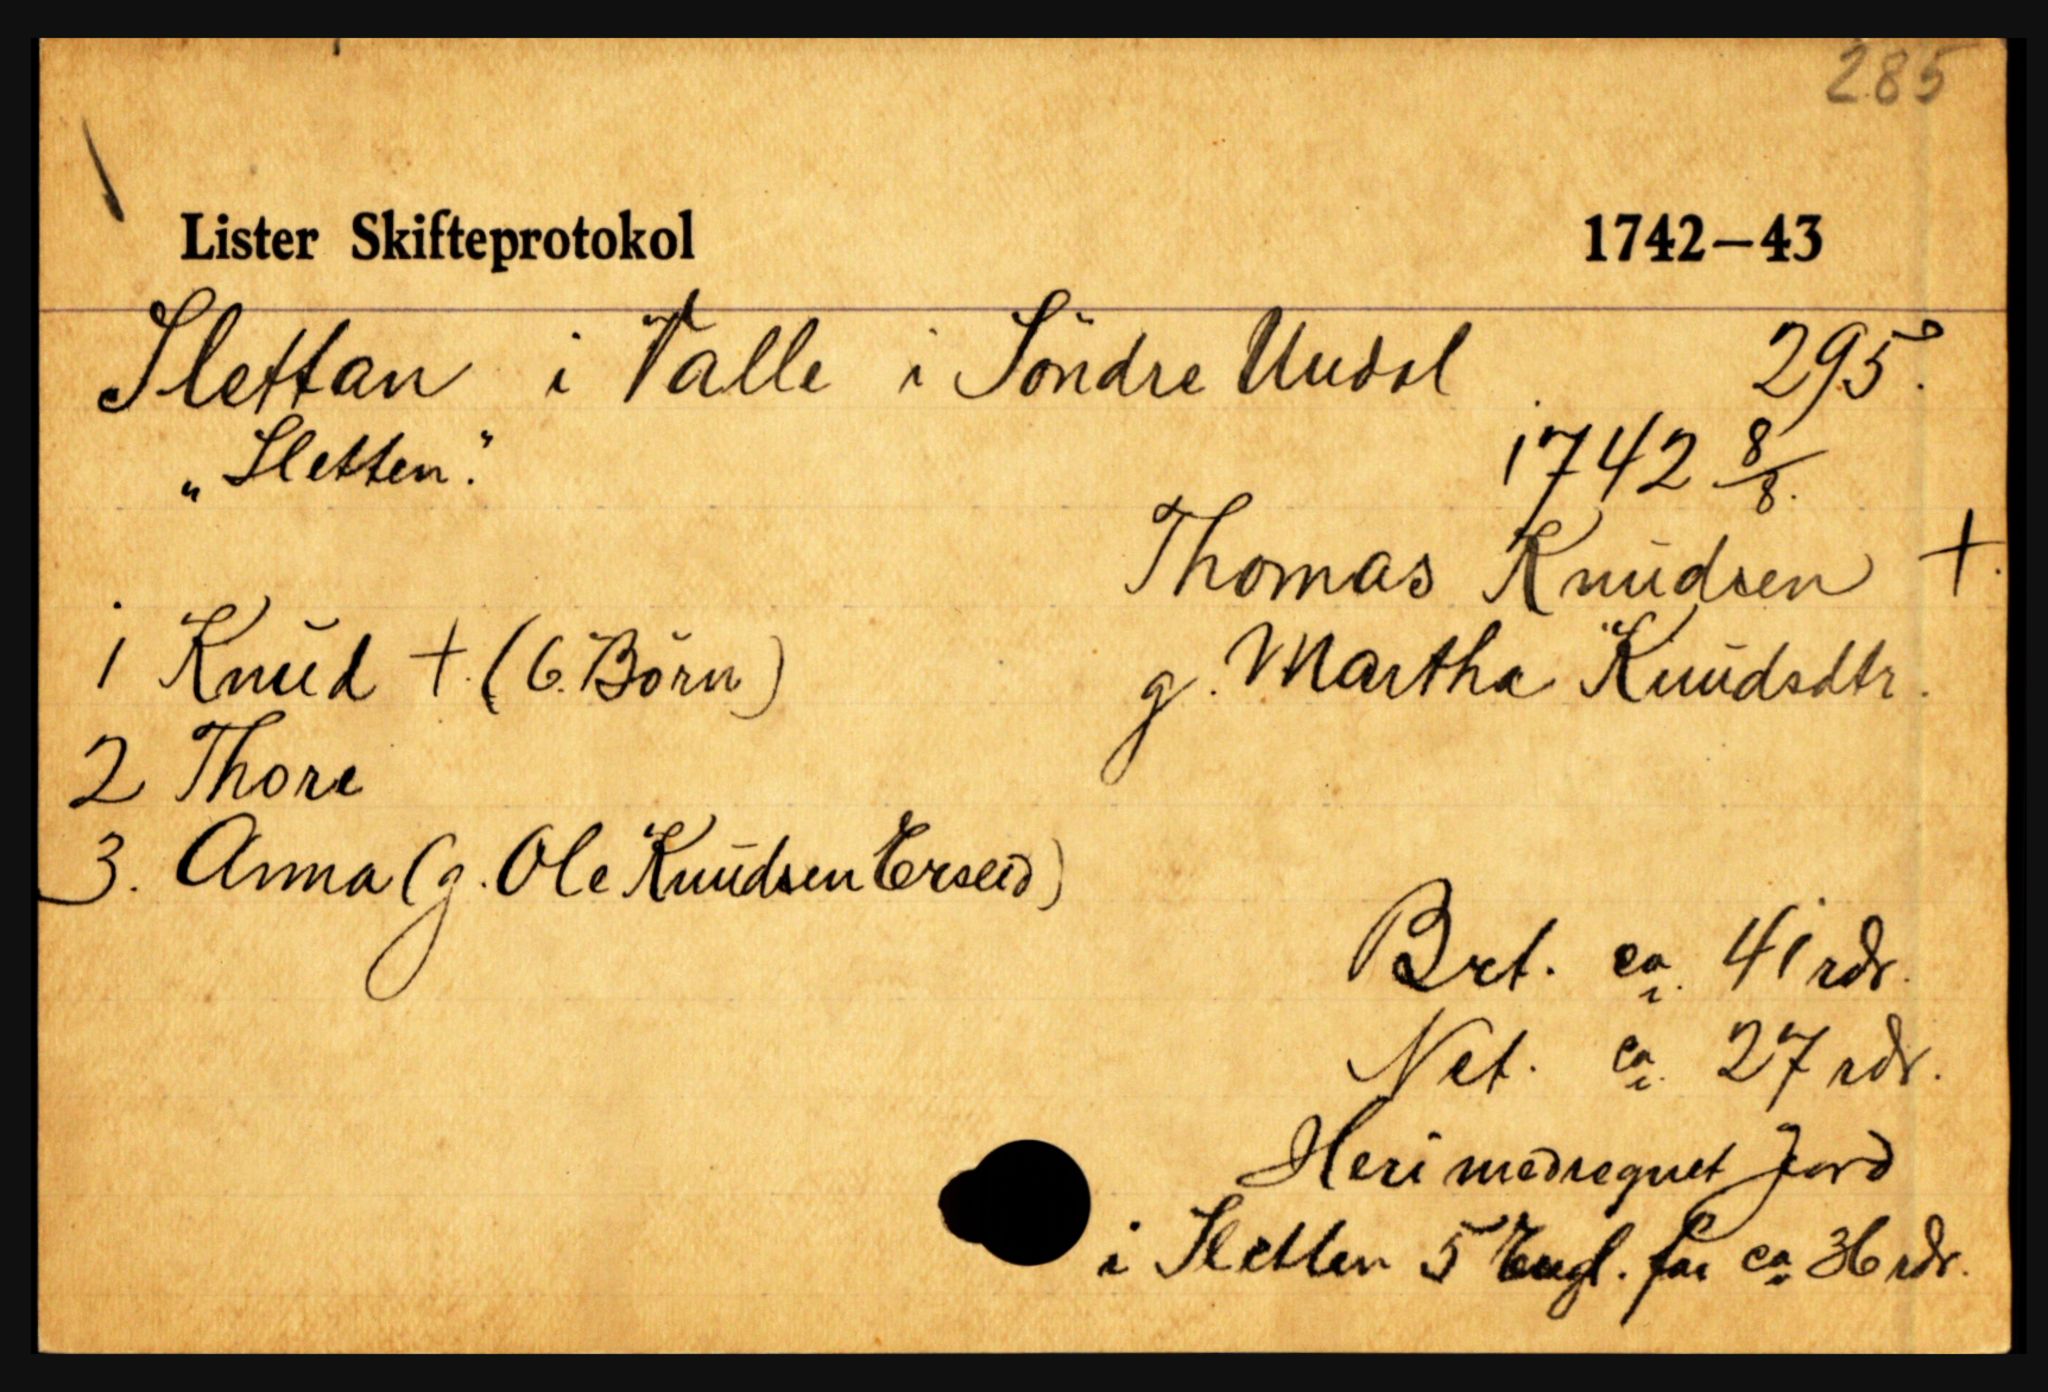 285
Lister Skifteprotokol 1742–43
Slettan i Valle i Söndre Undal 295ᵇ.
„Sletten."
1742 8/8.
Thomas Knudsen +.
1 Knud +. (6. Börn) g. Martha Knudsdtr.
2 Thore
3. Anna (g. Ole Knudsen Erseid)
Brt. ca. 41 rdr.
Net. ca. 27 rdr.
Heri medregnet Jord
i Sletten 5 Engl. for ca 36 rdr.